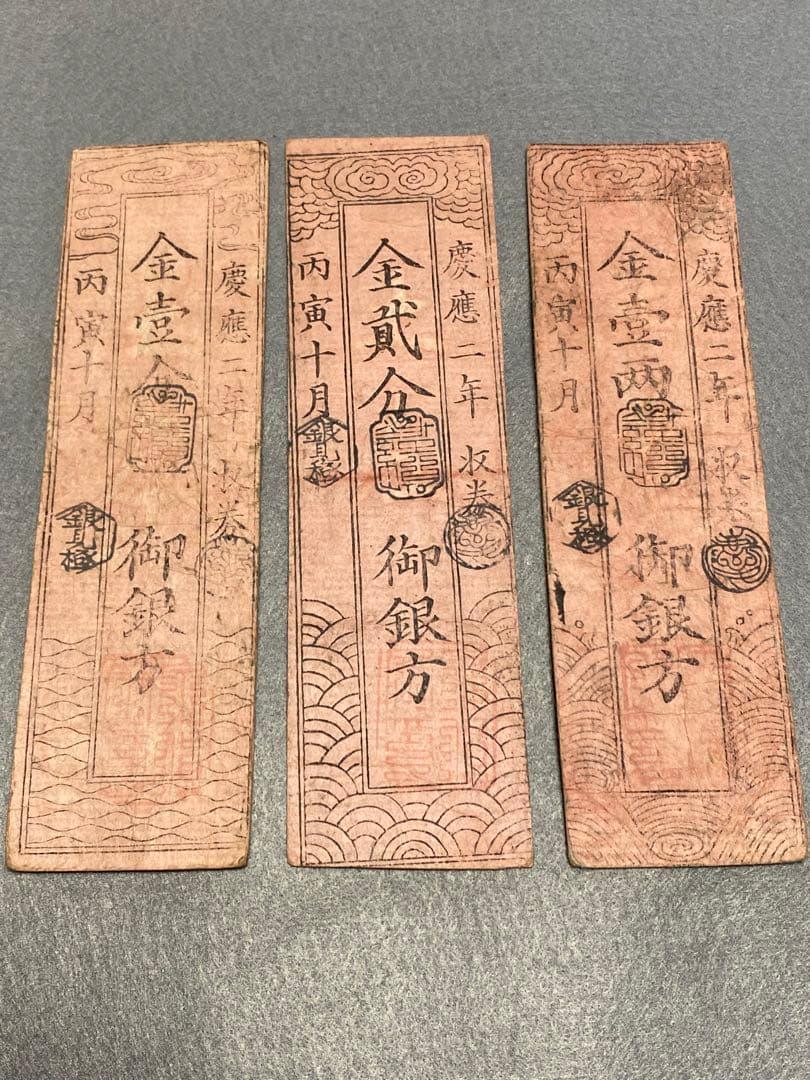 慶應二年 収券
金壹両 御銀方
丙寅十月
慶應二年 収券
金貳分 御銀方
丙寅十月
慶應二年 収券
金壹分 御銀方
丙寅十月